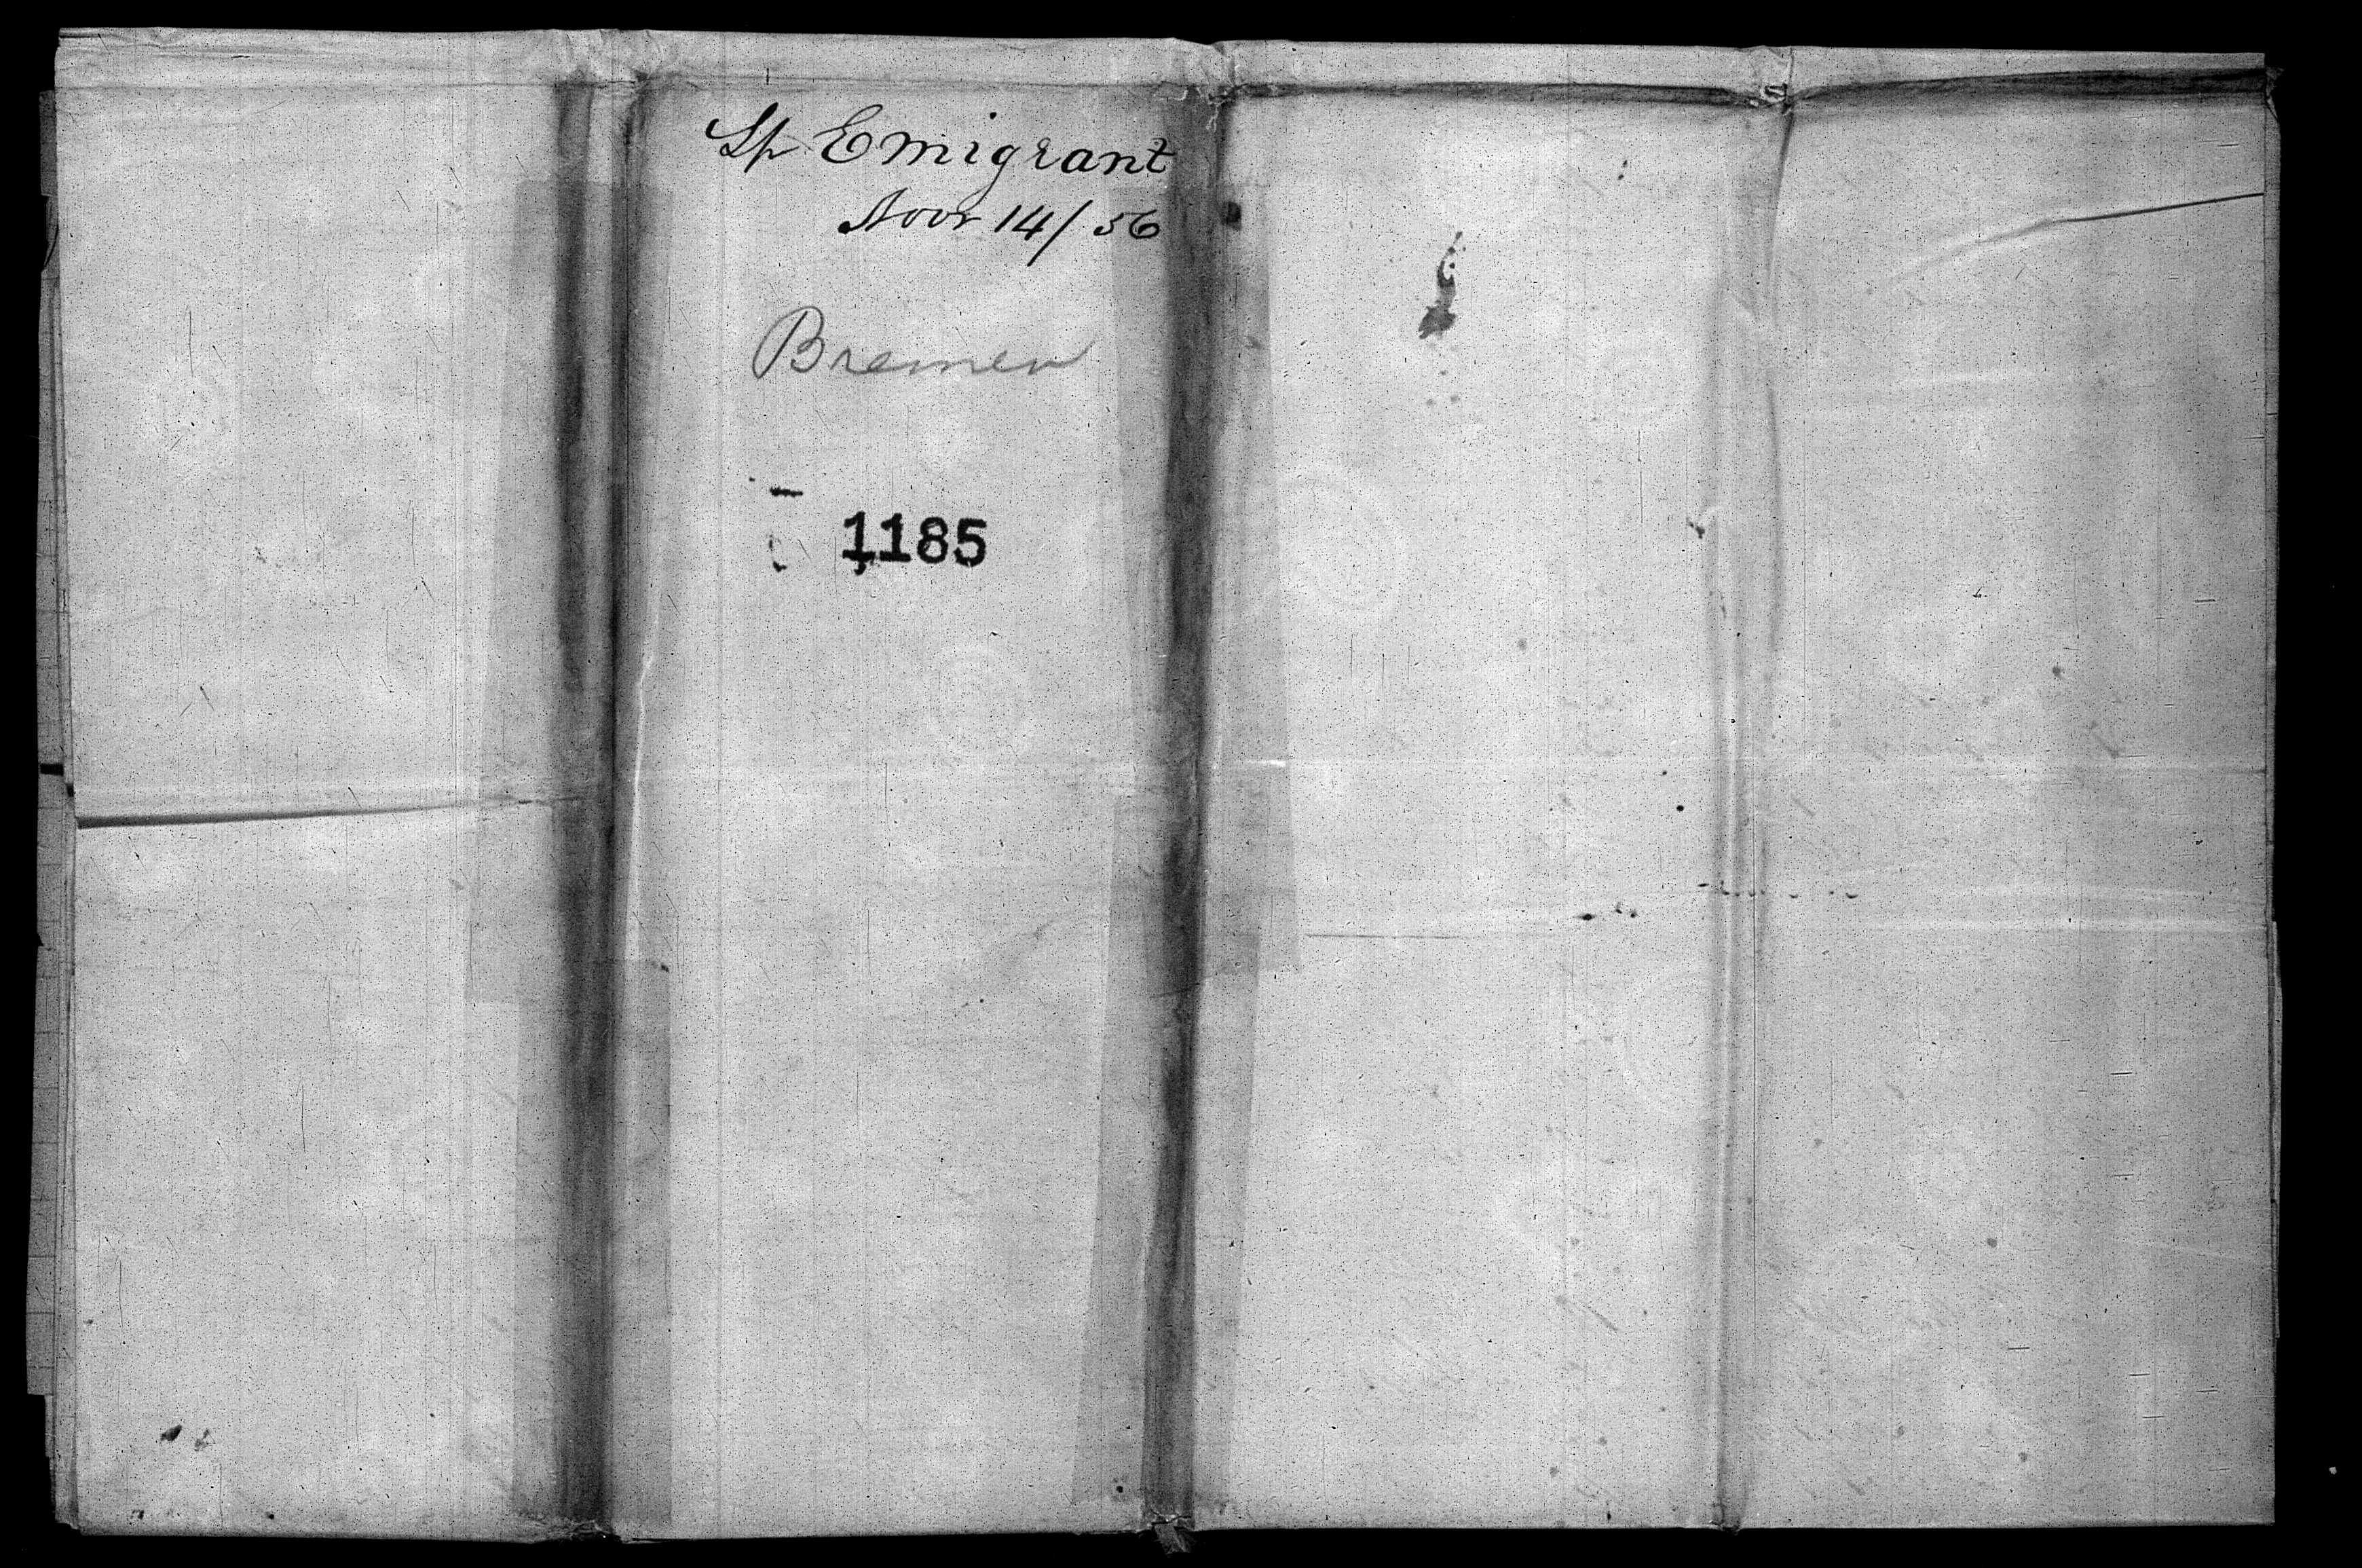 Sp Emigrant
Novr 14/56
Bremen
1185